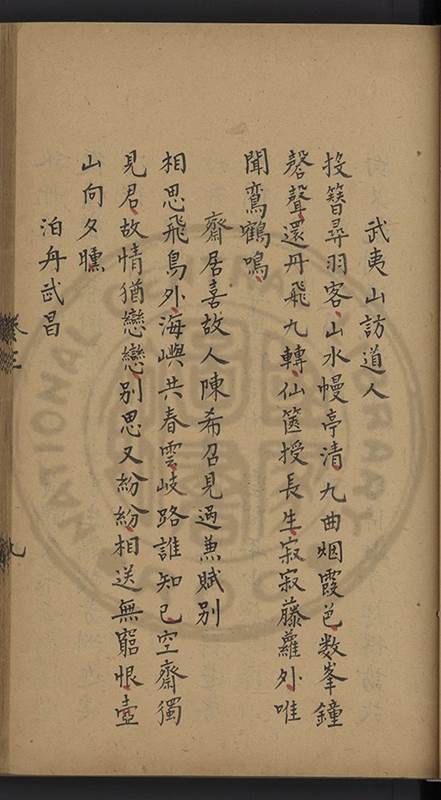 武夷山訪道人
投簪尋羽客山水幔亭清九曲烟霞邑數峯鐘
磬聲還丹飛九轉仙籙授長生寂寂藤蘿外唯
聞鸞鶴鳴
齋居喜故人陳希召見過兼賦別
相思飛鳥外海嶼共春雲岐路誰知己空齋獨
見君故情猶戀戀別思又紛紛相送無窮恨壺
山向夕曛
泊舟武昌
卷三
九